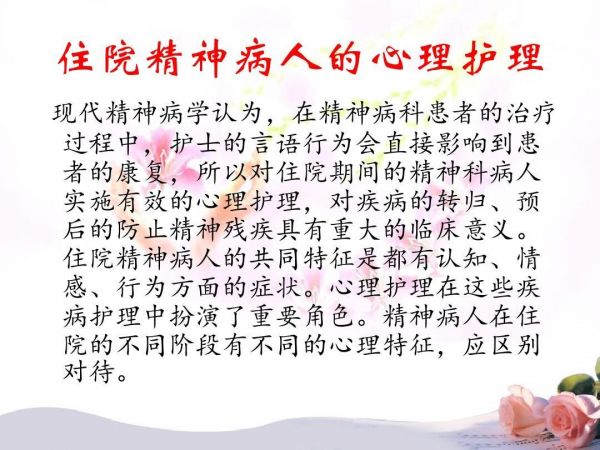 住院精神病人的心理护理
现代精神病学认为，在精神病科患者的治疗
过程中，护士的言语行为会直接影响到患
者的康复，所以对住院期间的精神科病人
实施有效的心理护理，对疾病的转归、预
后的防止精神残疾具有重大的临床意义。
住院精神病人的共同特征是都有认知、情
感、行为方面的症状。心理护理在这些疾
病护理中扮演了重要角色。精神病人在住
院的不同阶段有不同的心理特征，应区别
对待。